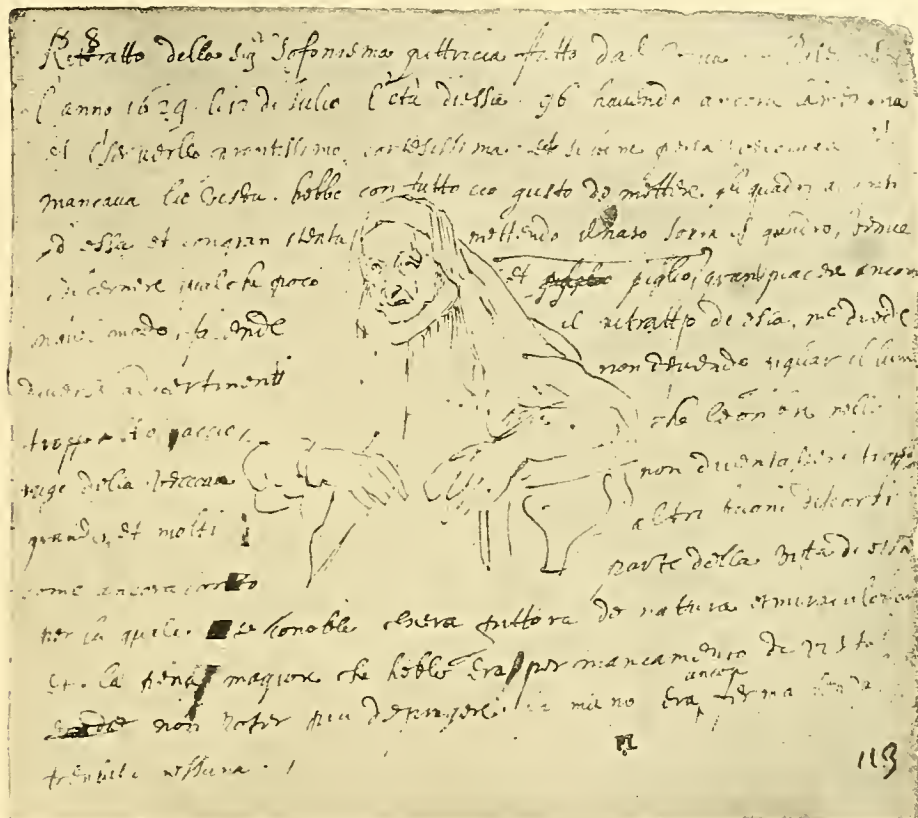 Rittratto della Sigra Sofonisma pittricia fatto dal vivo in
l'anno 1629 li 12 di Julio l'età di essa 96 havendo ancora
et cervello prontissimo, cortesissima et se bene per la vecciaia
mancava la vista hebbe con tutto ciò gusto de mettere gli quadri avanti
ad essa et con gran stenta mettendo il naso sopra il quadro, venne
discernere qualche poco et piglio gran piacere ancora
in quel modo, facendo il ritratto di essa, me diede
diversi advertimenti non devendo pigliar il lume
troppo alto, acciò che le ombre nelle
ruge della vecciaia non diventassero troppo
grandi, et molti altri buoni discorsi
come ancora conto parte della vita di essa
per la quale se conoble chera pittora de natura et miraculosa
et la pena magiore che hebbe era per mancamento di vista
non poter piu depingere la mano era ancora ferma senza
tremula nessuna
113